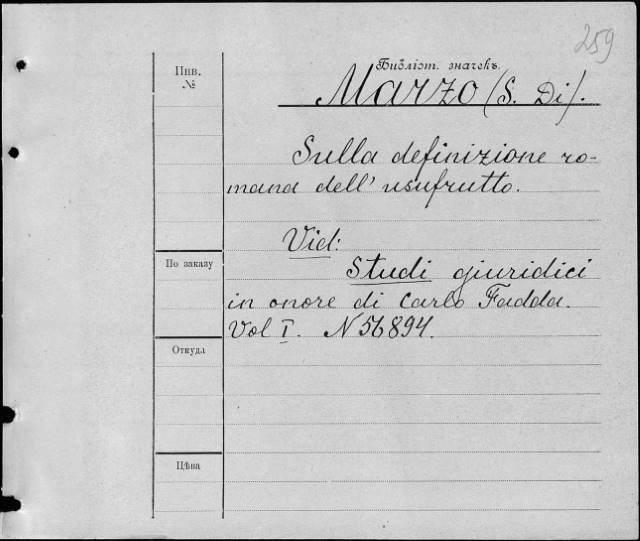 259
Библіот. значекъ.
Инв.
№
Marzo (S. Di).
Sulla definizione ro-
mana dell' usufrutto.
Vid:
По заказу
Studi giuridici
in onore di Carlo Fadda.
Vol I. N 56894.
Откуда
Цѣна